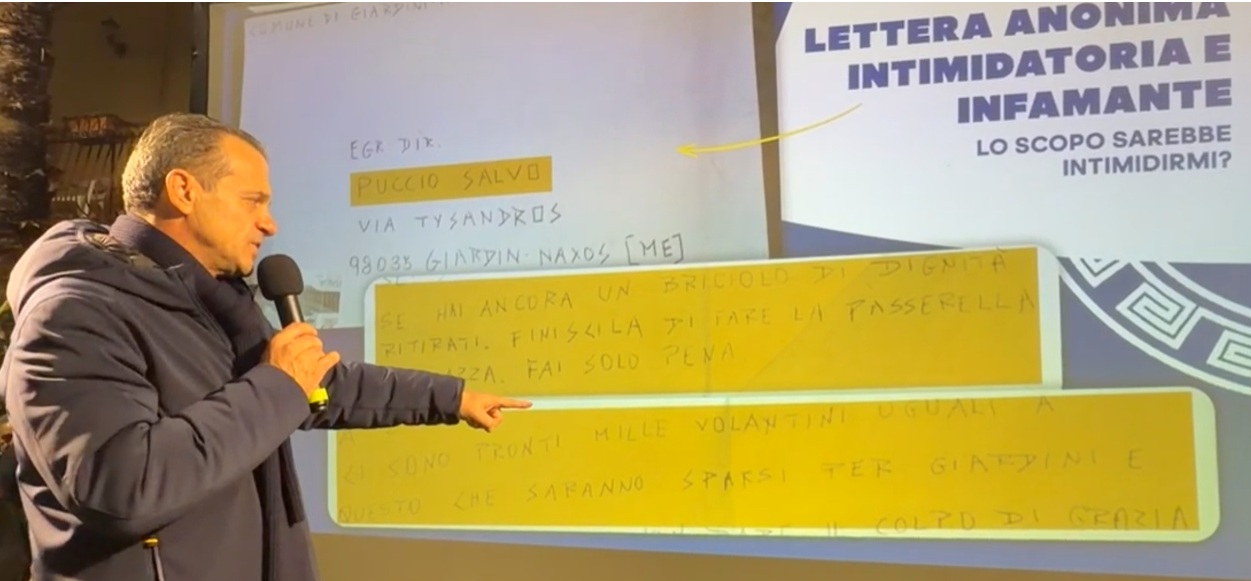 COMUNE DI GIARDINI
LETTERA ANONIMA
INTIMIDATORIA E
INFAMANTE
LO SCOPO SAREBBE
INTIMIDIRMI?
EGR DIR.
PUCCIO SALVO
VIA TYSANDROS
98035 GIARDIN·NAXOS [ME]
SE HAI ANCORA UN BRICIOLO DI DIGNITÀ
RITIRATI. FINISCILA DI FARE LA PASSERELLA
FAI SOLO PENA.
CI SONO PRONTI MILLE VOLANTINI UGUALI A
QUESTO CHE SARANNO SPARSI PER GIARDINI E
IL COLPO DI GRAZIA